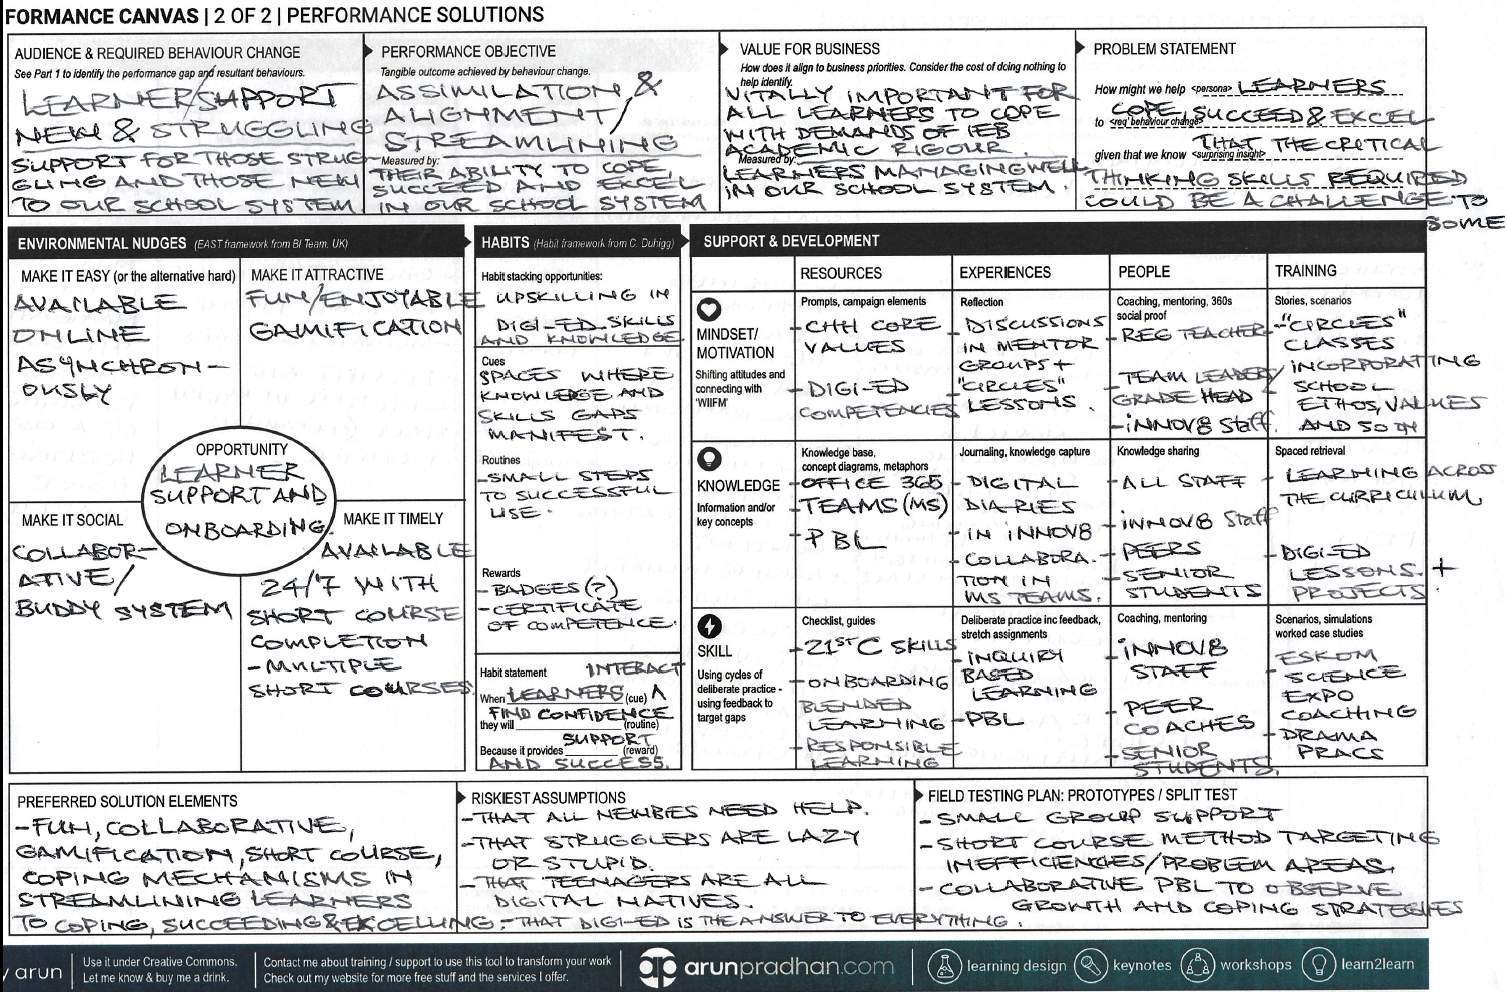 FORMANCE CANVAS | 2 OF 2 | PERFORMANCE SOLUTIONS
AUDIENCE & REQUIRED BEHAVIOUR CHANGE
See Part 1 to identify the performance gap and resultant behaviours.
LEARNER SUPPORT
NEW & STRUGGLING
SUPPORT FOR THOSE STRUG-
GLING AND THOSE NEW
TO OUR SCHOOL SYSTEM.
PERFORMANCE OBJECTIVE
Tangible outcome achieved by behaviour change.
ASSIMILATION, &
ALIGNMENT/
STREAMLINING
Measured by:
THEIR ABILITY TO COPE,
SUCCEED AND EXCEL
IN OUR SCHOOL SYSTEM
VALUE FOR BUSINESS
How does it align to business priorities. Consider the cost of doing nothing to
help identify.
VITALLY IMPORTANT FOR
ALL LEARNERS TO COPE
WITH DEMANDS OF IEB
ACADEMIC RIGOUR.
Measured by:
LEARNERS MANAGING WELL
IN OUR SCHOOL SYSTEM.
PROBLEM STATEMENT
How might we help <persona> LEARNERS
to <req' behaviour change> COPE, SUCCEED & EXCEL
given that we know <surprising insight> THAT THE CRITICAL
THINKING SKILLS REQUIRED
COULD BE A CHALLENGE TO
SOME
ENVIRONMENTAL NUDGES (EAST framework from BI Team, UK)
MAKE IT EASY (or the alternative hard)
AVAILABLE
ONLINE
ASYNCHRON-
OUSLY
MAKE IT ATTRACTIVE
FUN/ENJOYABLE
GAMIFICATION
OPPORTUNITY
LEARNER
SUPPORT AND
ONBOARDING.
MAKE IT SOCIAL
COLLABOR-
ATIVE/
BUDDY SYSTEM
MAKE IT TIMELY
AVAILABLE
24/7 WITH
SHORT COURSE
COMPLETION
- MULTIPLE
SHORT COURSES
HABITS (Habit framework from C. Duhigg)
Habit stacking opportunities:
UPSKILLING IN
DIGI-ED SKILLS
AND KNOWLEDGE.
Cues
SPACES WHERE
KNOWLEDGE AND
SKILLS GAPS
MANIFEST.
Routines
- SMALL STEPS
TO SUCCESSFUL
USE.
Rewards
- BADGES (?)
- CERTIFICATE
OF COMPETENCE.
Habit statement INTERACT
When LEARNERS (cue) ^
FIND CONFIDENCE
they will (routine)
SUPPORT
Because it provides (reward)
AND SUCCESS.
SUPPORT & DEVELOPMENT
RESOURCES
EXPERIENCES
PEOPLE
TRAINING
MINDSET/
MOTIVATION
Shifting attitudes and
connecting with
'WIIFM'
Prompts, campaign elements
- CHH CORE
VALUES
- DIGI-ED
COMPETENCIES
Reflection
- DISCUSSIONS
IN MENTOR
GROUPS +
"CIRCLES"
LESSONS.
Coaching, mentoring, 360s
social proof
- REG TEACHER
- TEAM LEADER/
GRADE HEAD
- INNOV8 Staff.
Stories, scenarios
- "CIRCLES"
CLASSES
INCORPORATING
SCHOOL
ETHOS, VALUES
AND SO ON
KNOWLEDGE
Information and/or
key concepts
Knowledge base,
concept diagrams, metaphors
- OFFICE 365
- TEAMS (MS)
- PBL
Journaling, knowledge capture
- DIGITAL
DIARIES
IN INNOV8
- COLLABORA-
TION IN
MS TEAMS.
Knowledge sharing
- ALL STAFF
- INNOV8 Staff
- PEERS
- SENIOR
STUDENTS
Spaced retrieval
- LEARNING ACROSS
THE CURRICULUM
- DIGI-ED
LESSONS. +
PROJECTS
SKILL
Using cycles of
deliberate practice -
using feedback to
target gaps
Checklist, guides
- 21ST C SKILLS
- ONBOARDING
- BLENDED
LEARNING
- RESPONSIBLE
LEARNING
Deliberate practice inc feedback,
stretch assignments
- INQUIRY
BASED
LEARNING
- PBL
Coaching, mentoring
- INNOV8
STAFF
- PEER
COACHES
- SENIOR
STUDENTS.
Scenarios, simulations
worked case studies
- ESKOM
SCIENCE
EXPO
COACHING
- DRAMA
PRACS
PREFERRED SOLUTION ELEMENTS
- FUN, COLLABORATIVE,
GAMIFICATION, SHORT COURSE,
COPING MECHANISMS IN
STREAMLINING LEARNERS
TO COPING, SUCCEEDING & EXCELLING.
RISKIEST ASSUMPTIONS
- THAT ALL NEWBIES NEED HELP.
- THAT STRUGGLERS ARE LAZY
OR STUPID.
- THAT TEENAGERS ARE ALL
DIGITAL NATIVES.
- THAT DIGI-ED IS THE ANSWER TO EVERYTHING.
FIELD TESTING PLAN: PROTOTYPES / SPLIT TEST
- SMALL GROUP SUPPORT
- SHORT COURSE METHOD TARGETING
INEFFICIENCIES/PROBLEM AREAS.
- COLLABORATIVE PBL TO OBSERVE
GROWTH AND COPING STRATEGIES
y arun
Use it under Creative Commons.
Let me know & buy me a drink.
Contact me about training / support to use this tool to transform your work
Check out my website for more free stuff and the services I offer.
arunpradhan.com
learning design
keynotes
workshops
learn2learn